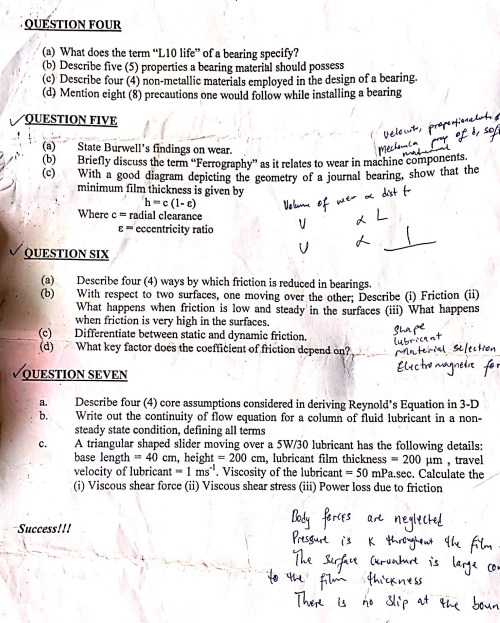 QUESTION FOUR
(a) What does the term "L10 life" of a bearing specify?
(b) Describe five (5) properties a bearing material should possess
(c) Describe four (4) non-metallic materials employed in the design of a bearing.
(d) Mention eight (8) precautions one would follow while installing a bearing
QUESTION FIVE
(a) State Burwell's findings on wear.
(b) Briefly discuss the term "Ferrography" as it relates to wear in machine components.
(c) With a good diagram depicting the geometry of a journal bearing, show that the
minimum film thickness is given by
h = c (1- ε)
Where c = radial clearance
ε = eccentricity ratio
Volume of wear ∝ dist t
V ∝ L
V ∝ 1
QUESTION SIX
(a) Describe four (4) ways by which friction is reduced in bearings.
(b) With respect to two surfaces, one moving over the other; Describe (i) Friction (ii)
What happens when friction is low and steady in the surfaces (iii) What happens
when friction is very high in the surfaces.
(c) Differentiate between static and dynamic friction.
(d) What key factor does the coefficient of friction depend on?
shape
lubricant
material selection
Electromagnetic for
QUESTION SEVEN
a. Describe four (4) core assumptions considered in deriving Reynold's Equation in 3-D
b. Write out the continuity of flow equation for a column of fluid lubricant in a non-
steady state condition, defining all terms
c. A triangular shaped slider moving over a 5W/30 lubricant has the following details:
base length = 40 cm, height = 200 cm, lubricant film thickness = 200 μm , travel
velocity of lubricant = 1 ms⁻¹. Viscosity of the lubricant = 50 mPa.sec. Calculate the
(i) Viscous shear force (ii) Viscous shear stress (iii) Power loss due to friction
Success!!!
Body forces are neglected
Pressure is K throughout the film
The surface curvature is large co
to the film thickness
There is no slip at the boun